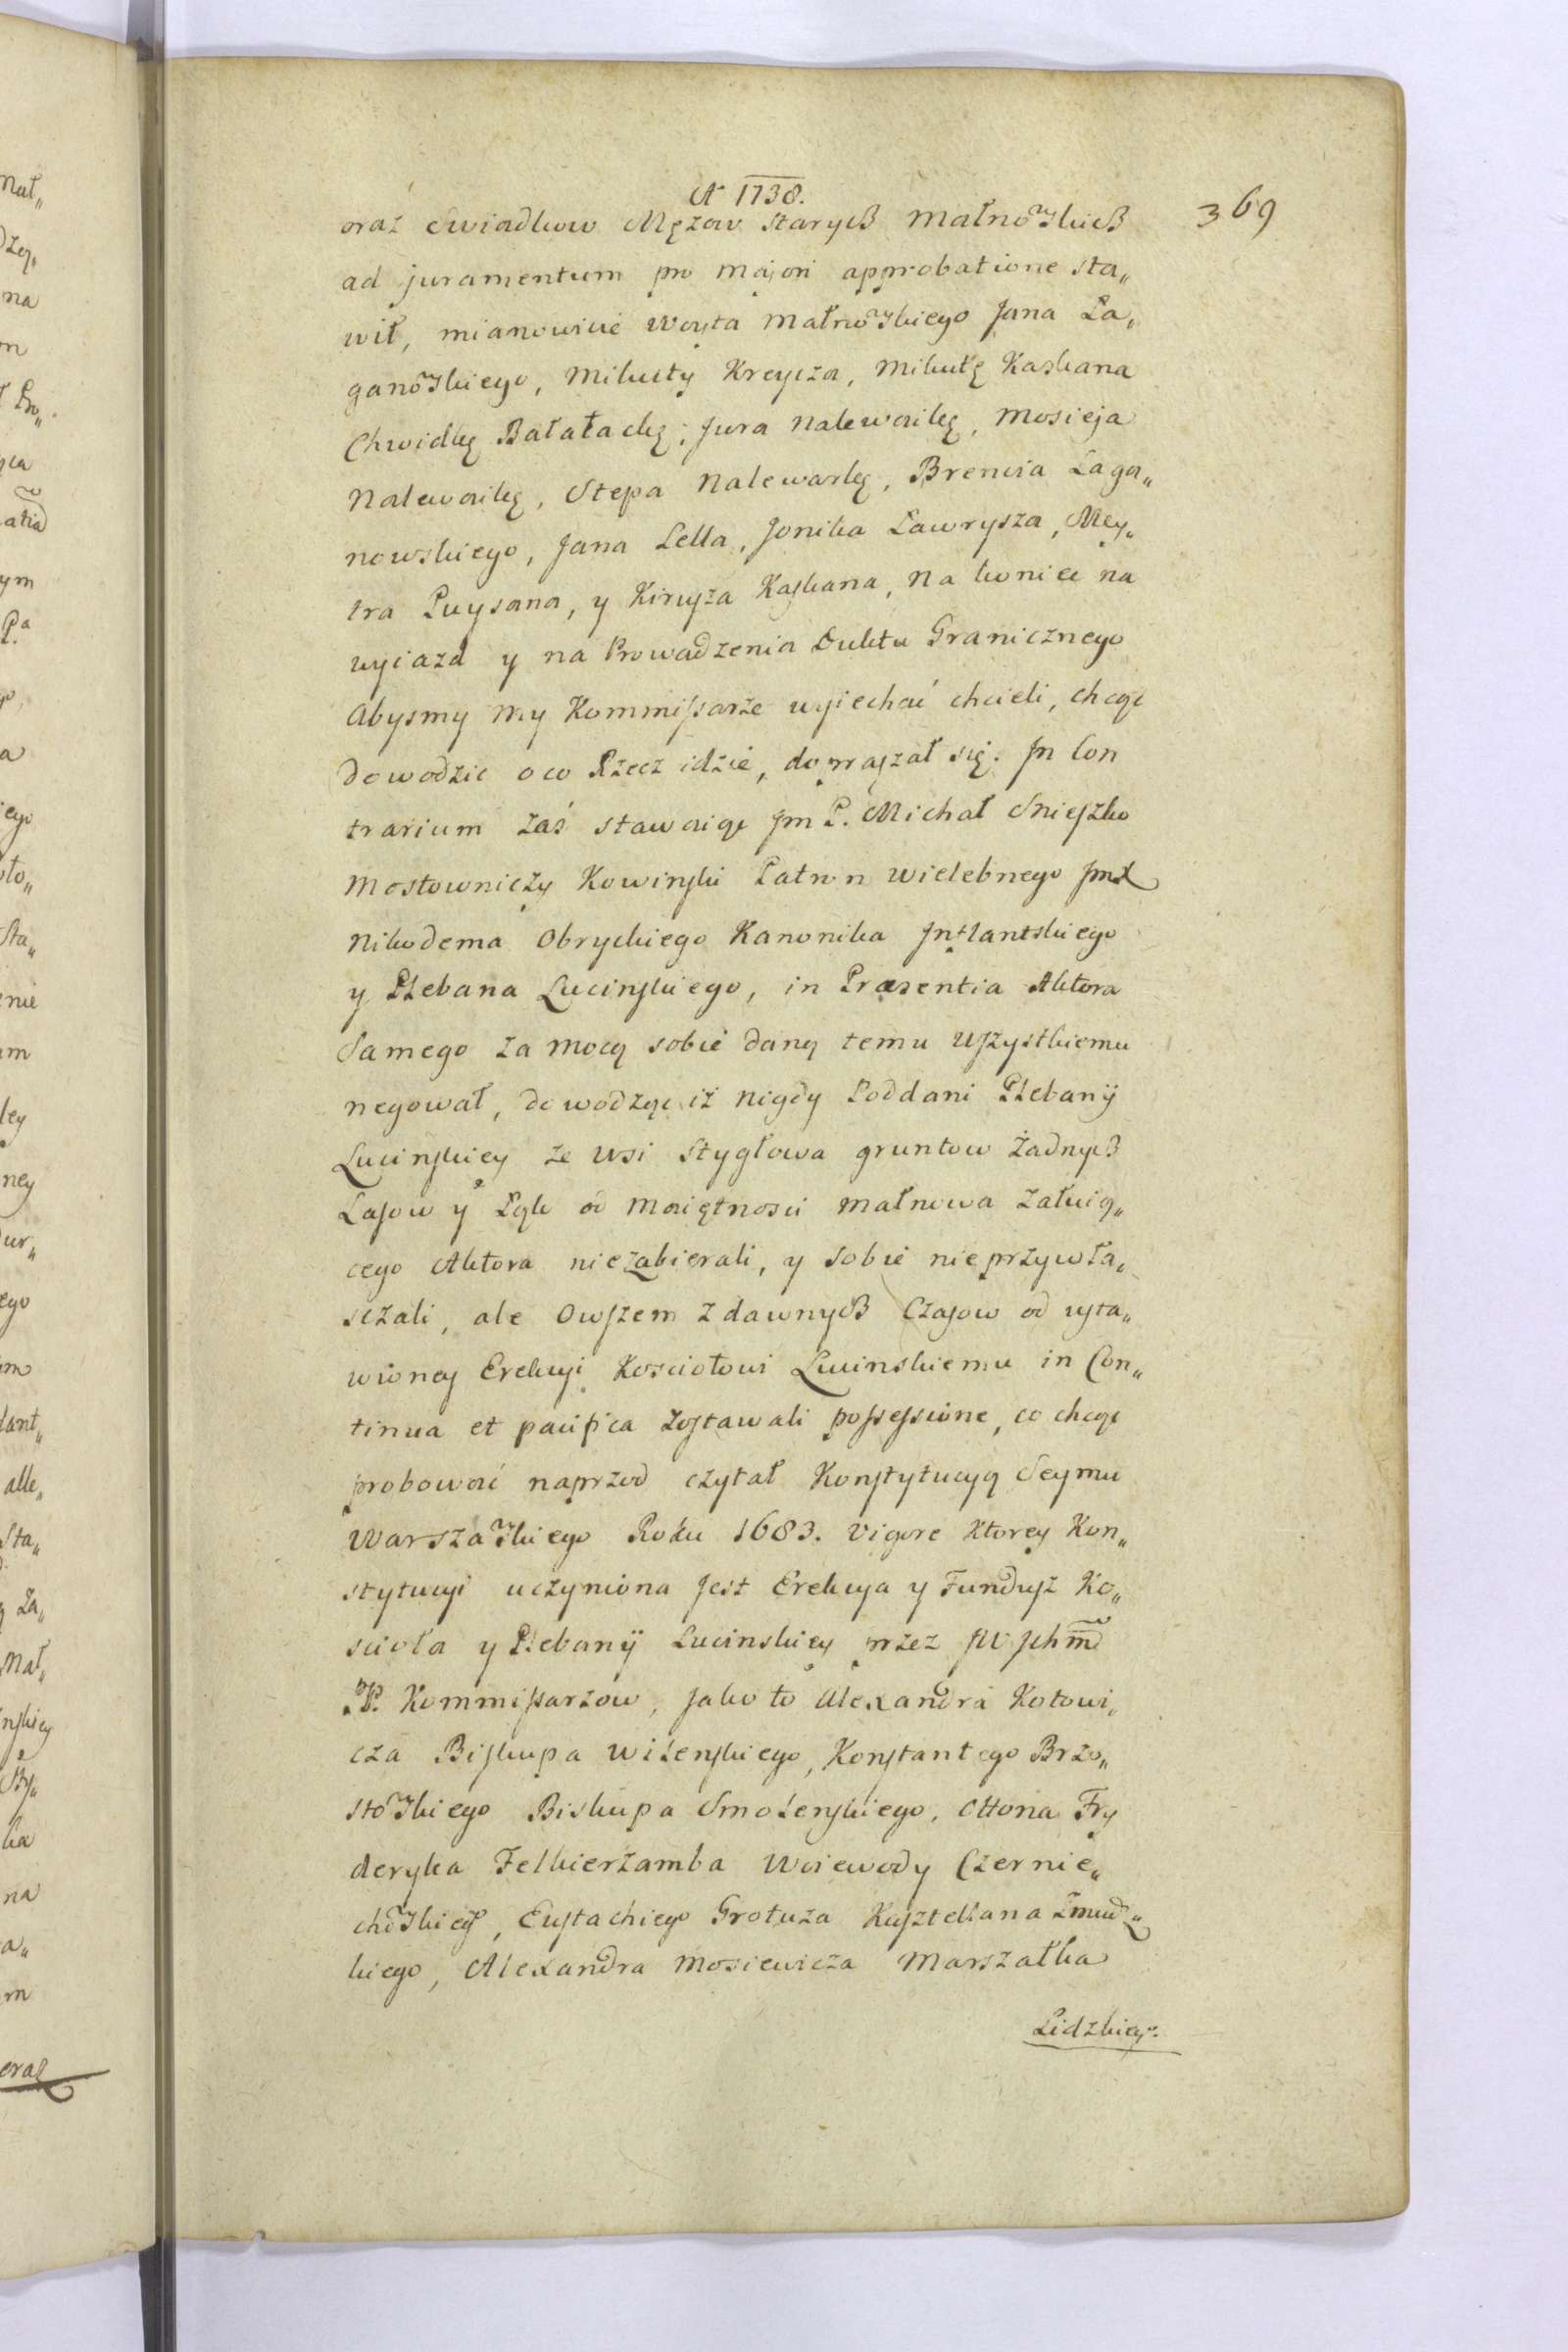 A 1738.
369
oraz swiadkow Mężow starych Małnowskich
ad juramentum pro majori approbatione sta„
wił, mianowicie Woyta Małnowskiego Jana Ła„
ganowskiego, Mikuty Kreycza, Mikutę Kaskana
Chwidkę Bałatackę, Jura Nalewaikę, Mosieja
Nalewaikę, Stepa Nalewaykę, Brencia Łaga„
nowskiego, Jana Lella, Jonika Ławrysza, Mey„
tra Puysana, y Kiruyza Kaskana, na koniec na
wyiazd y na Prowadzenia Duktu Granicznego
Abysmy my Kommissarze wyiechać chcieli, chcąc
dowodzic o co Rzecz idzie, dopraszał się. In Con
trarium zaś stawaiąc Jm P. Michał Snieszko
Mostowniczy Kowinski Patron Wielebnego JmX
Nikodema Obryckiego Kanonika Inflantskiego
y Plebana Lucinskiego, in Præsentia Aktora
Samego za mocą sobie daną temu wszystkiemu
negował, dowodząc iż nigdy Poddani Plebanij
Lucinskiey ze wsi Stygłowa gruntow żadnych
Lasow y Łąk od Maiętnosci Małnowa Załuią„
cego Aktora niezabierali, y sobie nieprzywła„
sczali, ale owszem z dawnych Czasow od usta„
wioney Erekcyi Kosciołowi Lucinskiemu in Con„
tinua et pacifica zostawali possessione, co chcąc
probować naprzod czytał Konstytucyą Seymu
Warszawskiego Roku 1683. Vigore Ktorey Kon„
stytucyi uczyniona jest Erekcya y Fundusz Ko„
scioła y Plebanij Lucinskiey przez JW Jchm
P. Kommissarzow, jako to Alexandra Kotowi„
cza Biskupa Wilenskiego, Konstantego Brzo„
stowskiego Biskupa Smolenskiego, Ottona Fry
deryka Felkierzamba Woiewody Czernie„
chowskiego, Eustachiego Grotuza Kasztellana Zmudz„
kiego, Alexandra Mosiewicza Marszałka
Lidzkiego.